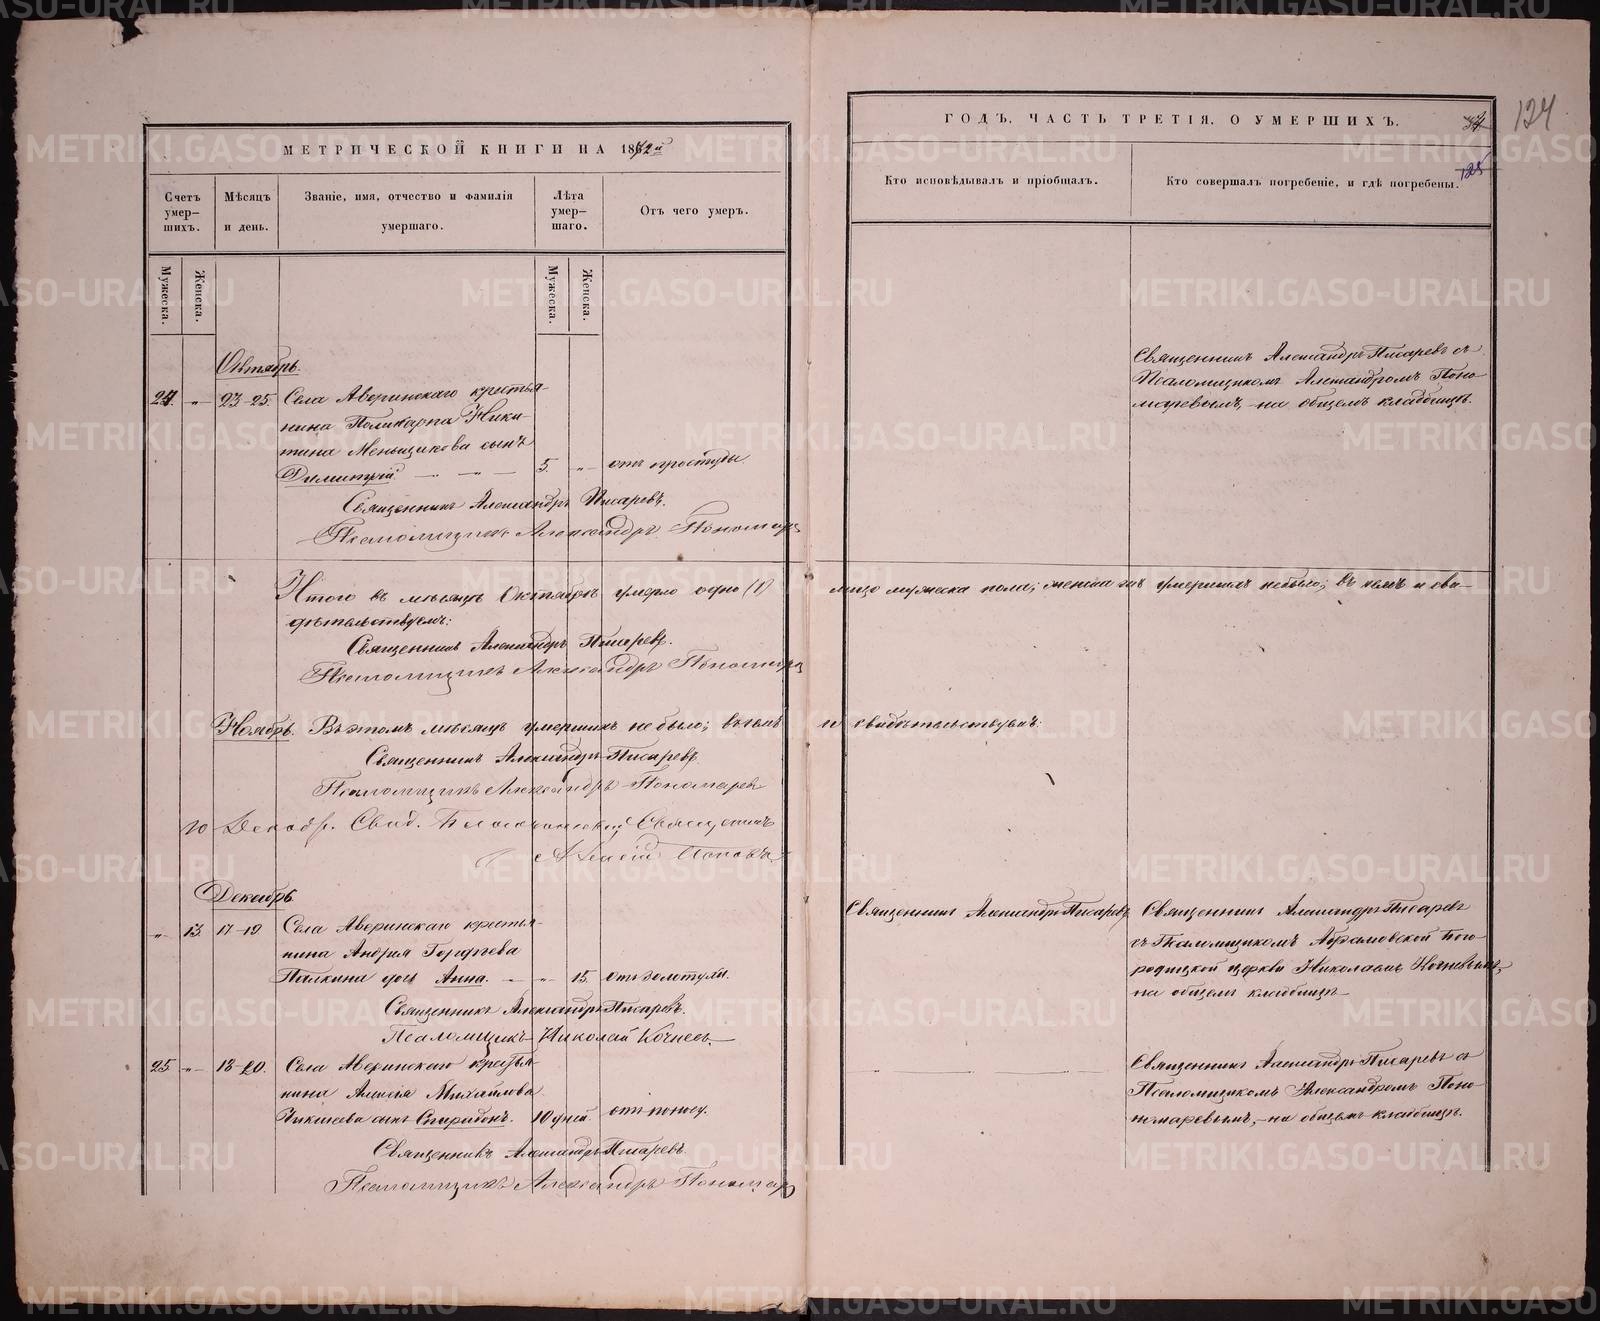 МЕТРИЧЕСКОЙ КНИГИ НА 1872й
Счетъ умер–шихъ.
Мѣсяцъ и день.
Званіе, имя, отчество и фамилія умершаго.
Лѣта умер–шаго.
Отъ чего умеръ.
Мужеска.
Женска.
Мужеска.
Женска.
Октябрь.
24. „ 23–25. Села Аверинскаго крестья–
нина Поликарпа Ники–
тина Меньщикова сынъ
Димитрій. — „ — 5. „ отъ простуды.
Священникъ Александръ Писаревъ.
Псаломщикъ Александръ Пономарев
Итого въ мѣсяцѣ Октябрѣ умерло одно (1)
дѣтельствуемъ:
Священникъ Александръ Писаревъ.
Псаломщикъ Александръ Пономарев
Ноябрь. Въ этомъ мѣсяцѣ умершихъ не было; въ чемъ
Священникъ Александръ Писаревъ
Псаломщикъ Александръ Пономарев
10 Декабр. Свид. Благочинный Священникъ
Алексій Поповъ
Декабрь
„ 13. 17–19 Села Аверинскаго крестья–
нина Андрея Гордѣева
Палкина дочь Анна. – „ 15. отъ золотухи.
Священникъ Александръ Писаревъ.
Псаломщикъ Николай Кочневъ
25 „ 18–20. Села Аверинскаго крестья–
нина Алексія Михайлова
сынъ Спиридонъ. 10 дней. отъ поносу.
Священникъ Александръ Писаревъ.
Псаломщикъ Александръ Пономарев
ГОДЪ. ЧАСТЬ ТРЕТІЯ. О УМЕРШИХЪ.
124
125
Кто исповѣдывалъ и пріобщалъ.
Кто совершалъ погребеніе, и гдѣ погребены.
Священникъ Александръ Писаревъ съ
Псаломщикомъ Александромъ Поно–
маревымъ, на общемъ кладбищѣ.
лицо мужеска пола; женска же умершихъ небыло; въ чемъ и сви–
и свидѣтельствуемъ:
Священникъ Александръ Писаревъ
Священникъ Александръ Писаревъ
съ Псаломщикомъ Абрамовской Бого–
родицкой церкви Николаемъ Кочневымъ,
на общемъ кладбищѣ
Священникъ Александръ Писаревъ съ
Псаломщикомъ Александромъ Поно–
номаревымъ, – на общемъ кладбищѣ.
METRIKI.GASO-URAL.RU